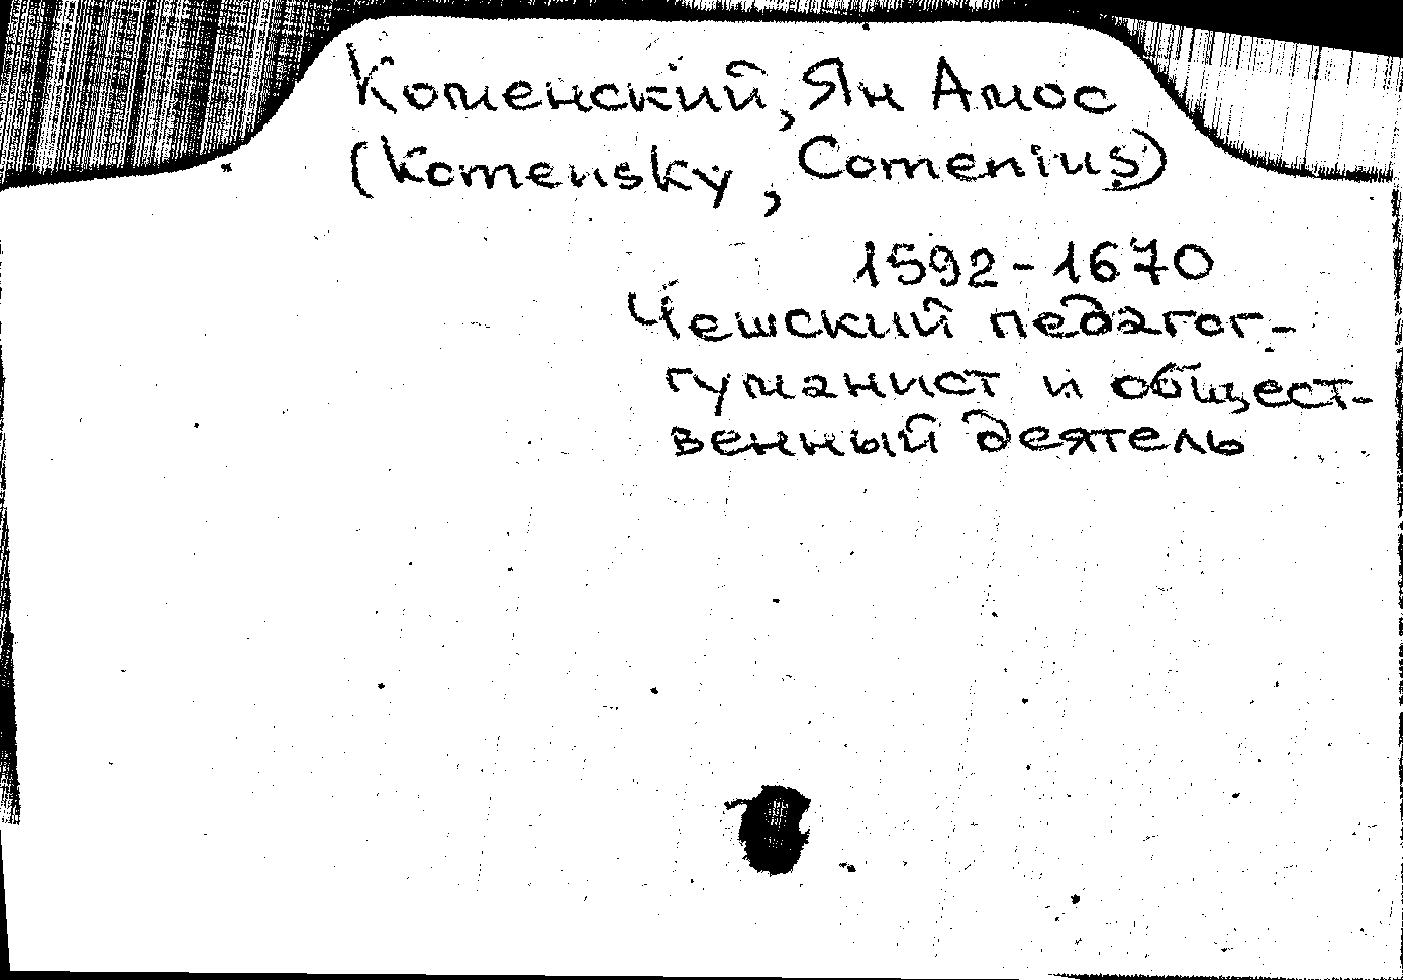 Коменский, Ян Амос
(Komensky, Comenius)
1592-1670
Чешский педагог-
гуманист и общест-
венный деятель